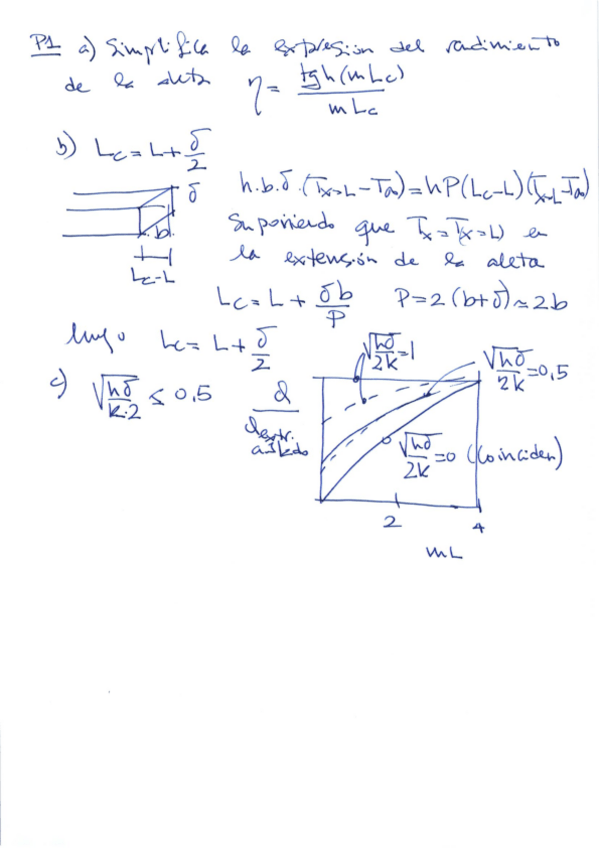 P1 a) Simplifica la expresión del rendimiento
de la aleta η = tgh(mLc) / mLc
b) Lc = L + δ/2
δ
b
Lc-L
h.b.δ.(Tx=L - T∞) = hP(Lc-L)(Tx=L - T∞)
Suponiendo que Tx = Tx=L) en
la extensión de la aleta
Lc = L + δb/P P = 2(b+δ) ≃ 2b
luego Lc = L + δ/2
c) √(hδ/k·2) ≤ 0,5
√(hδ/2k) = 1
√(hδ/2k) = 0,5
√(hδ/2k) = 0 (coinciden)
2 4
mL